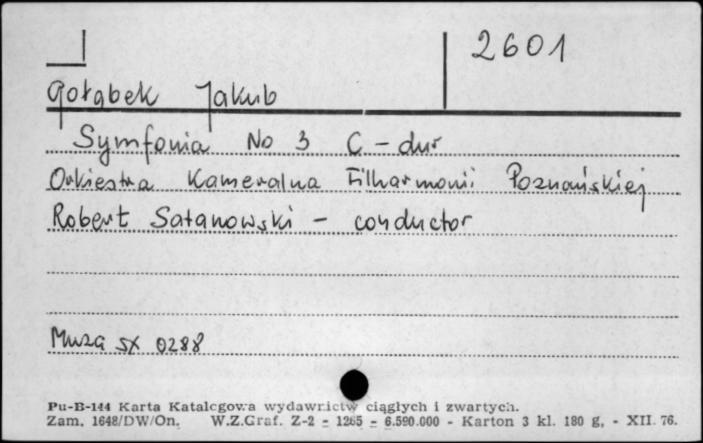 2601
Gołąbek Jakub
Symfonia No 3 C-dur
Orkiestra Kameralna Filharmonii Poznańskiej
Robert Satanowski - conductor
Muza SX 0288
Pu-B-144 Karta Katalogowa wydawnictw ciągłych i zwartych.
Zam. 1648/DW/On. W.Z.Graf. Z-2 - 1265 - 6.590.000 - Karton 3 kl. 180 g, - XII. 76.